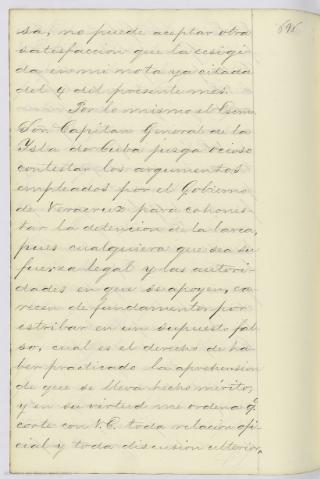 696
sa, no puede aceptar otra
satisfaccion que la ecsigi-
da en mi nota ya citada
del 4 del presente mes.
Por lo mismo el Escmo.
Sor. Capitan General de la
Ysla de Cuba juzga ocioso
contestar los argumentos
empleados por el Gobierno
de Veracruz para cohones-
tar la detencion de la barca,
pues cualquiera que sea su
fuerza legal y las autori-
dades en que se apoyen, ca-
recen de fundamento por
estribar en un supuesto fal-
so, cual es el derecho de ha-
ber practicado la aprehension
de que se lleva hecho mérito,
y en su virtud me ordena q.
corte con V.E. toda relacion ofi-
cial y toda discusion ulterior,